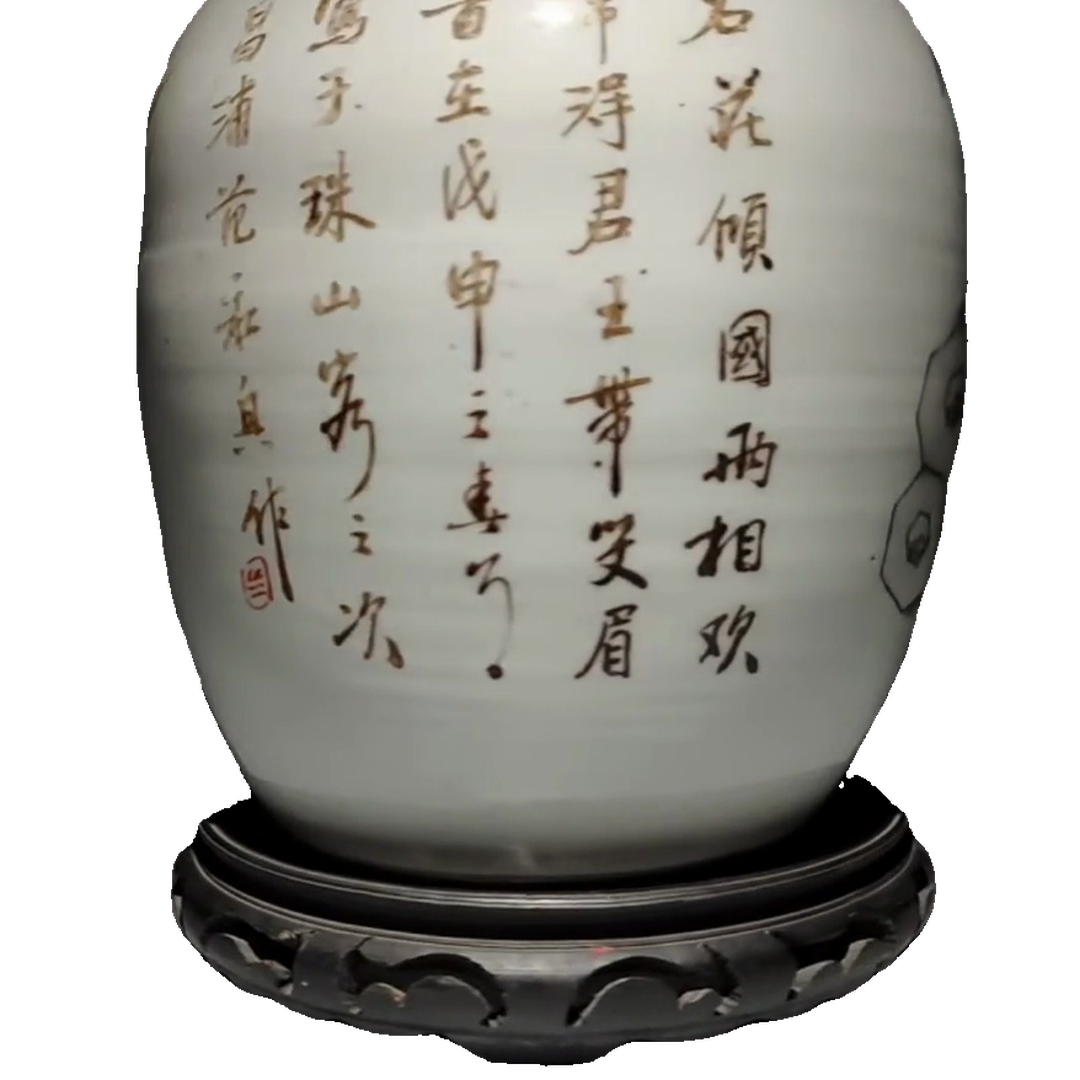 名花傾國兩相欢
常得君王帶笑眉
旹在戊申之春月
寫于珠山客之次
昌浦范永興作